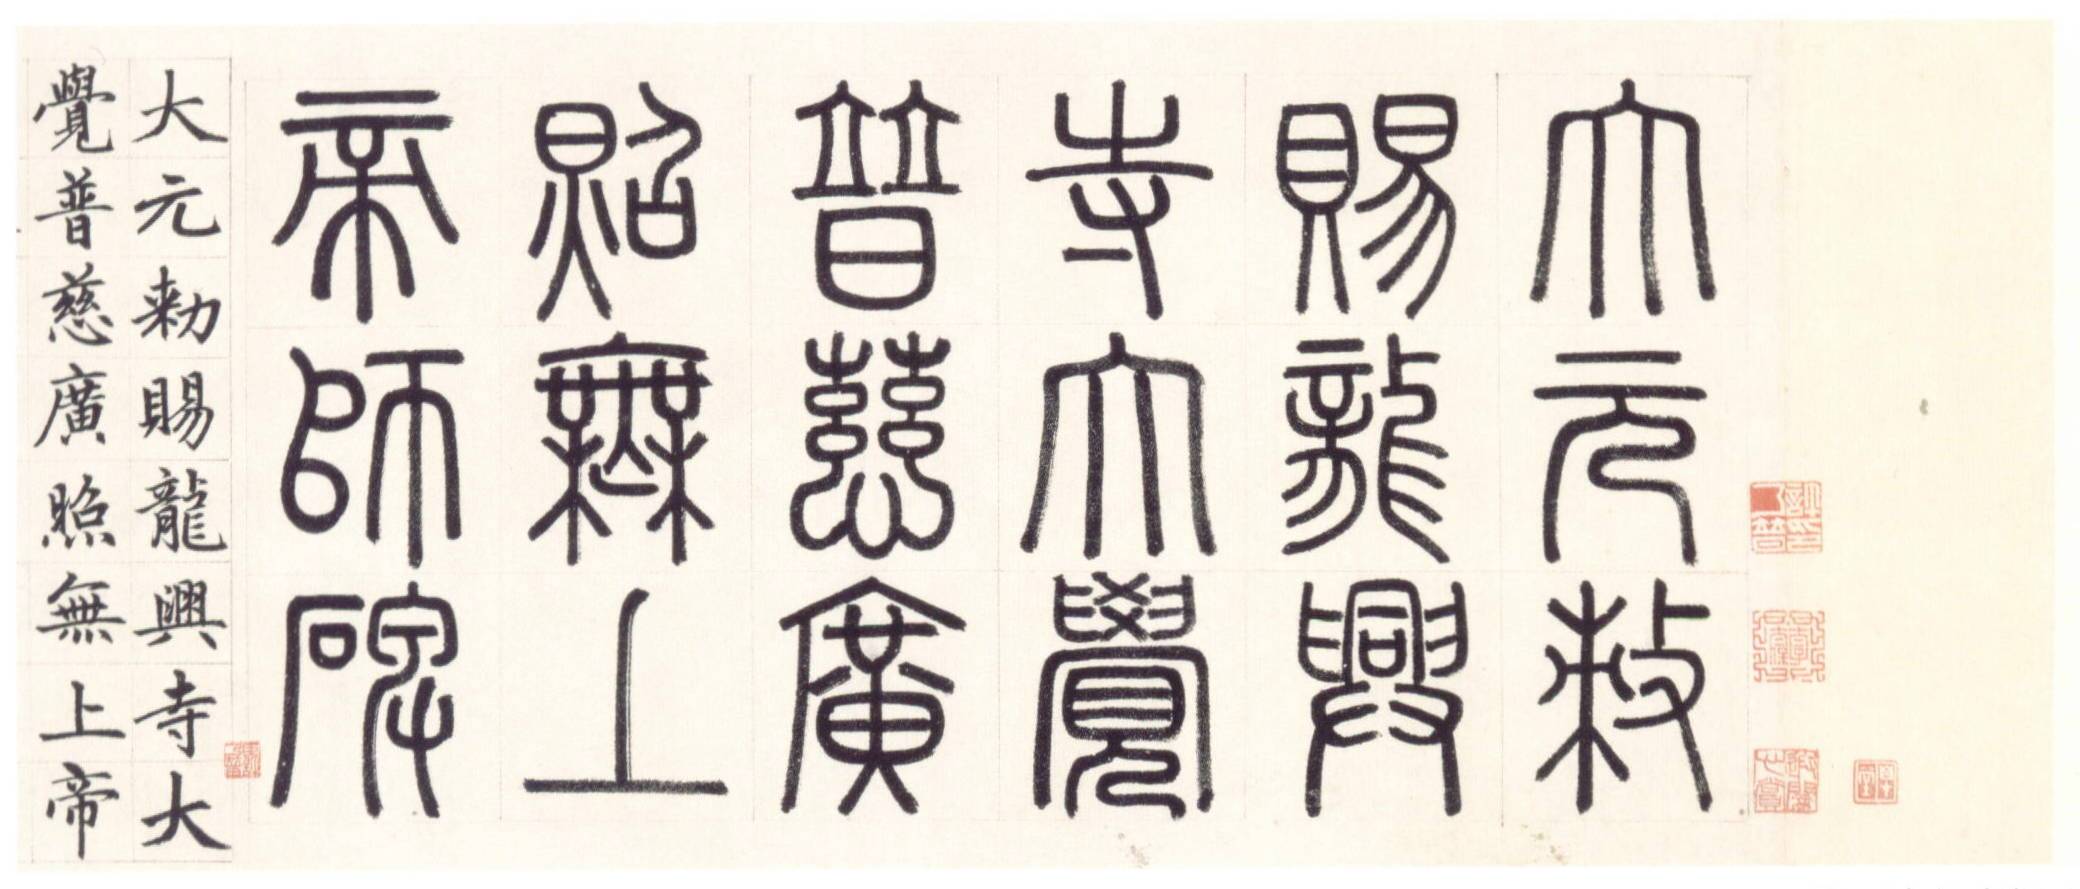 大元敕
賜龍興
寺大覺
普慈廣
照無上
帝師碑
大元勑賜龍興寺大
覺普慈廣照無上帝